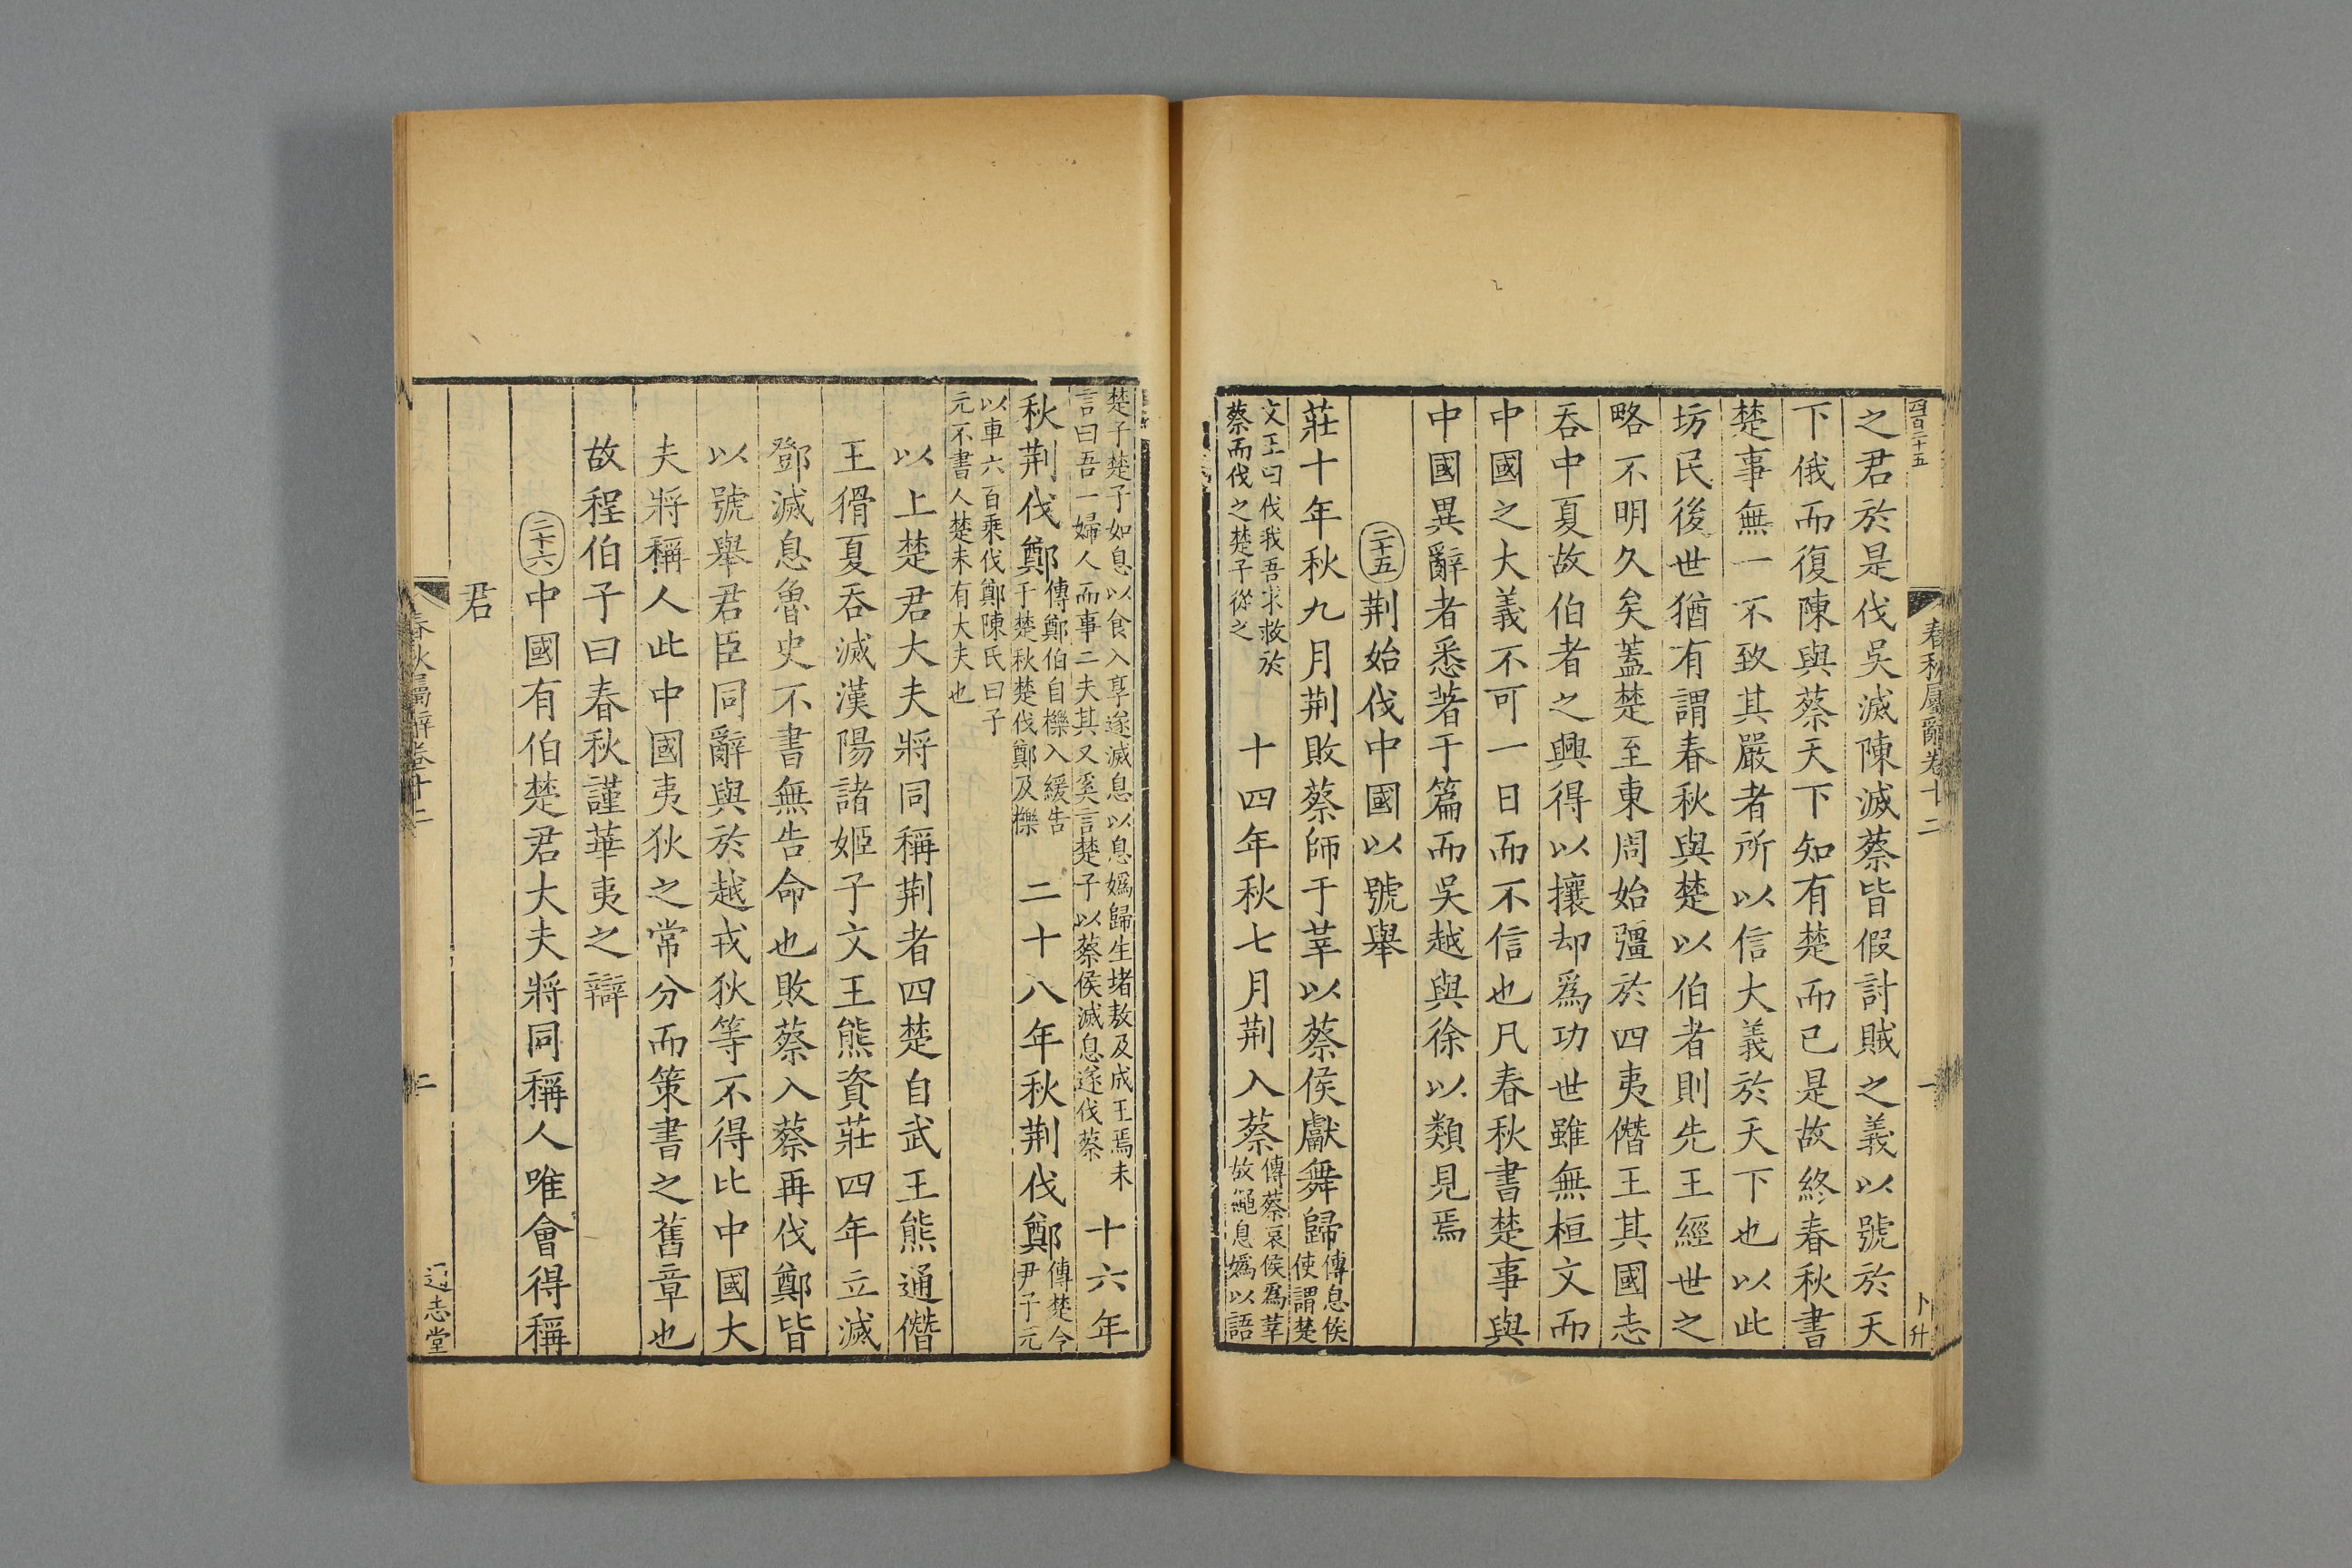 四百二十五
春秋屬辭卷十二
一
卜升
之君於是伐吳滅陳滅蔡皆假討賊之義以號於天
下俄而復陳與蔡天下知有楚而已是故終春秋書
楚事無一不致其嚴者所以信大義於天下也以此
坊民後世猶有謂春秋與楚以伯者則先王經世之
略不明久矣蓋楚至東周始彊於四夷僭王其國志
吞中夏故伯者之興得以攘却爲功世雖無桓文而
中國之大義不可一日而不信也凡春秋書楚事與
中國異辭者悉著于篇而吳越與徐以類見焉
二十五荆始伐中國以號舉
莊十年秋九月荆敗蔡師于莘以蔡侯獻舞歸傳息侯使謂楚
文王曰伐我吾求救於蔡而伐之楚子從之 十四年秋七月荆入蔡傳蔡哀侯爲莘故繩息嬀以語
楚子楚子如息以食入享遂滅息以息嬀歸生堵敖及成王焉未言曰吾一婦人而事二夫其又奚言楚子以蔡侯滅息遂伐蔡 十六年
秋荆伐鄭傳鄭伯自櫟入緩告于楚秋楚伐鄭及櫟 二十八年秋荆伐鄭傳楚令尹子元
以車六百乘伐鄭陳氏曰子元不書人楚未有大夫也
以上楚君大夫將同稱荆者四楚自武王熊通僭
王猾夏吞滅漢陽諸姬子文王熊資莊四年立滅
鄧滅息魯史不書無告命也敗蔡入蔡再伐鄭皆
以號舉君臣同辭與於越戎狄等不得比中國大
夫將稱人此中國夷狄之常分而策書之舊章也
故程伯子曰春秋謹華夷之辯
二十六中國有伯楚君大夫將同稱人唯會得稱
君
春秋屬辭卷十二
二
通志堂